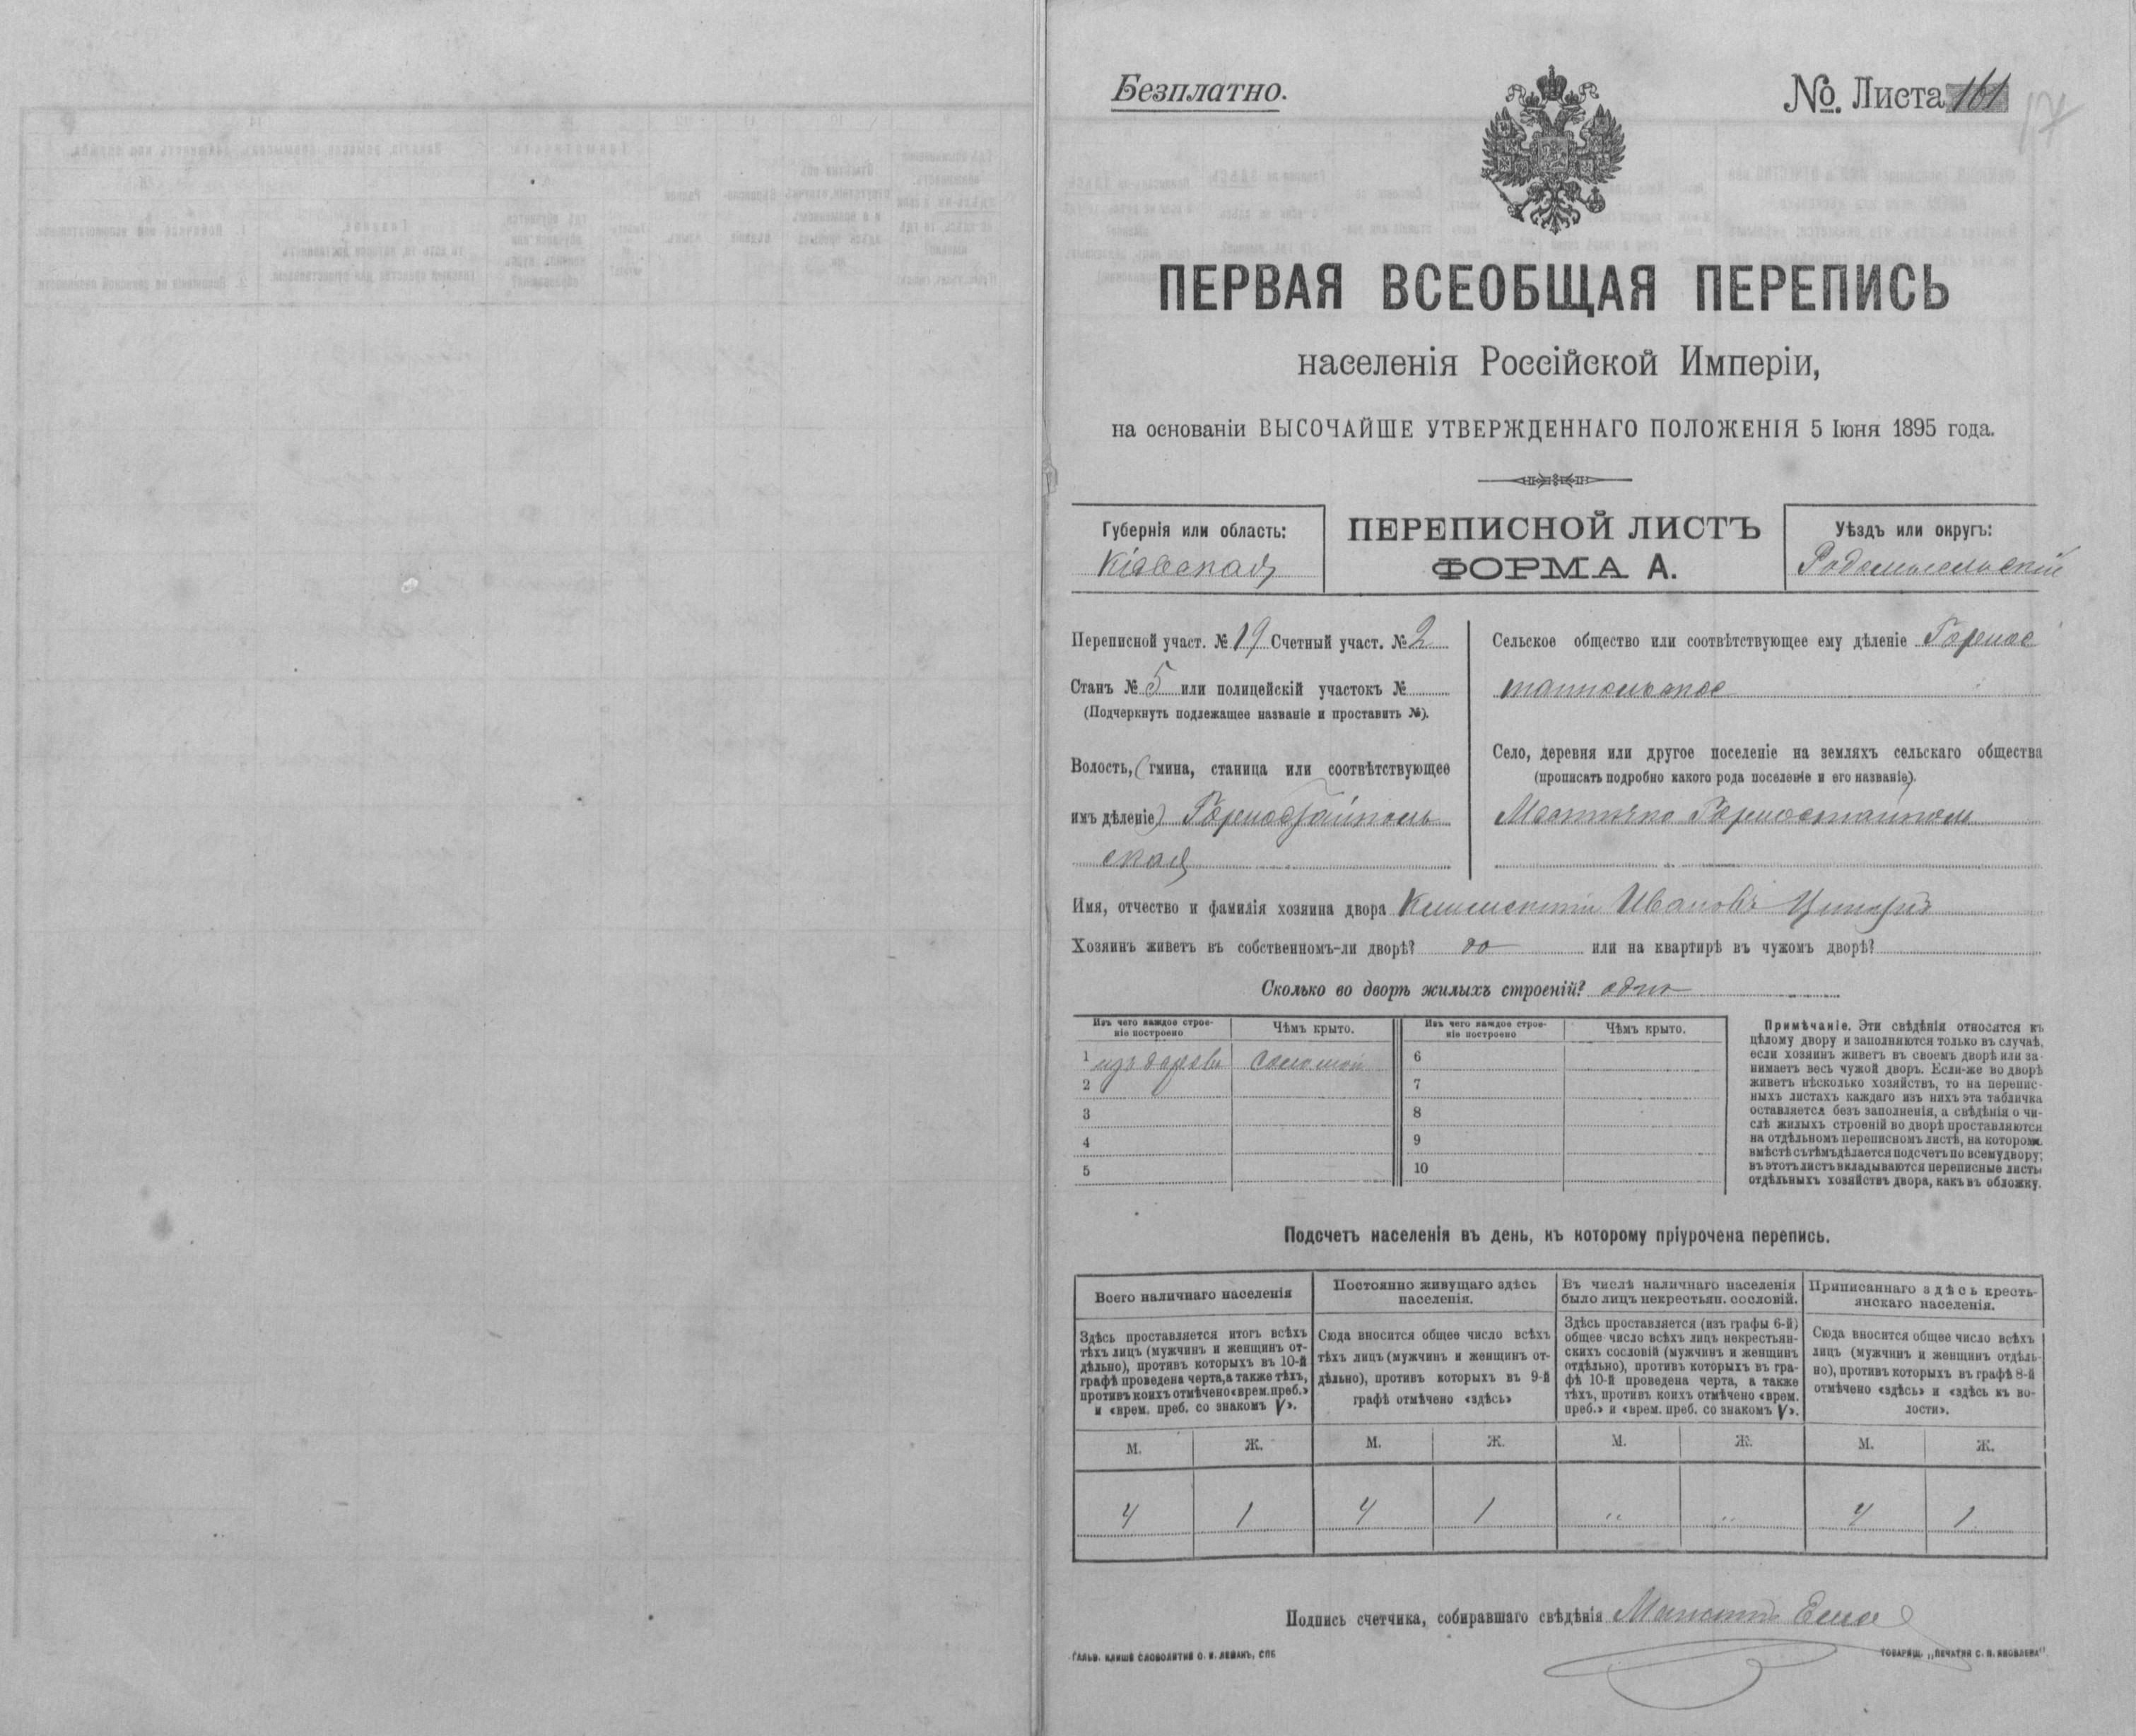 Безплатно.
№ Листа 161
17
ПЕРВАЯ ВСЕОБЩАЯ ПЕРЕПИСЬ
населенія Россійской Имперіи,
на основаніи ВЫСОЧАЙШЕ УТВЕРЖДЕННАГО ПОЛОЖЕНІЯ 5 Іюня 1895 года.
Губернія или область:
Кіевская
ПЕРЕПИСНОЙ ЛИСТЪ
ФОРМА А.
Уѣздъ или округъ:
Радомысльскій
Переписной участ. № 19 Счетный участ. № 2
Станъ № 5 или полицейскій участокъ №
(Подчеркнуть подлежащее названіе и проставить №).
Волость, (гмина, станица или соотвѣтствующее
имъ дѣленіе) Горностайполь
ская
Сельское общество или соотвѣтствующее ему дѣленіе Горнос
тайпольское
Село, деревня или другое поселеніе на земляхъ сельскаго общества
(прописать подробно какого рода поселеніе и его названіе).
Мѣстечко Горностайполь
Имя, отчество и фамилія хозяина двора Климентій Ивановъ
Хозяинъ живетъ въ собственномъ-ли дворѣ? да или на квартирѣ въ чужомъ дворѣ?
Сколько во дворѣ жилыхъ строеній? одно
Изъ чего каждое строе-
ніе построено
Чѣмъ крыто.
Изъ чего каждое строе-
ніе построено
Чѣмъ крыто.
1 изъ дерева соломой
2
3
4
5
6
7
8
9
10
Примѣчаніе. Эти свѣдѣнія относятся къ
цѣлому двору и заполняются только въ случаѣ,
если хозяинъ живетъ въ своемъ дворѣ или за-
нимаетъ весь чужой дворъ. Если-же во дворѣ
живетъ нѣсколько хозяйствъ, то на перепис-
ныхъ листахъ каждаго изъ нихъ эта табличка
оставляется безъ заполненія, а свѣдѣнія о чи-
слѣ жилыхъ строеній во дворѣ проставляются
на отдѣльномъ переписномъ листѣ, на которомъ
вмѣстѣ съ тѣмъ дѣлается подсчетъ по всему двору;
въ этотъ листъ вкладываются переписные листы
отдѣльныхъ хозяйствъ двора, какъ въ обложку.
Подсчетъ населенія въ день, къ которому пріурочена перепись.
Всего наличнаго населенія
Здѣсь проставляется итогъ всѣхъ
тѣхъ лицъ (мужчинъ и женщинъ от-
дѣльно), противъ которыхъ въ 10-й
графѣ проведена черта, а также тѣхъ,
противъ коихъ отмѣчено «врем. преб.»
и «врем. преб. со знакомъ V».
Постоянно живущаго здѣсь
населенія.
Сюда вносится общее число всѣхъ
тѣхъ лицъ (мужчинъ и женщинъ от-
дѣльно), противъ которыхъ въ 9-й
графѣ отмѣчено «здѣсь»
Въ числѣ наличнаго населенія
было лицъ некрестьян. сословій.
Здѣсь проставляется (изъ графы 6-й)
общее число всѣхъ лицъ некрестьян-
скихъ сословій (мужчинъ и женщинъ
отдѣльно), противъ которыхъ въ гра-
фѣ 10-й проведена черта, а также
тѣхъ, противъ коихъ отмѣчено «врем.
преб.» и «врем. преб. со знакомъ V».
Приписаннаго здѣсь кресть-
янскаго населенія.
Сюда вносится общее число всѣхъ
лицъ (мужчинъ и женщинъ отдѣль-
но), противъ которыхъ въ графѣ 8-й
отмѣчено «здѣсь» и «здѣсь въ во-
лости».
М. Ж. М. Ж. М. Ж. М. Ж.
4 1 4 1 " " 4 1
Подпись счетчика, собиравшаго свѣдѣнія
ГАЛЬВ. КЛИШЕ СЛОВОЛИТНИ О. И. ЛЕМАНЪ, СПБ
ТОВАРИЩ. „ПЕЧАТНЯ С. П. ЯКОВЛЕВА"